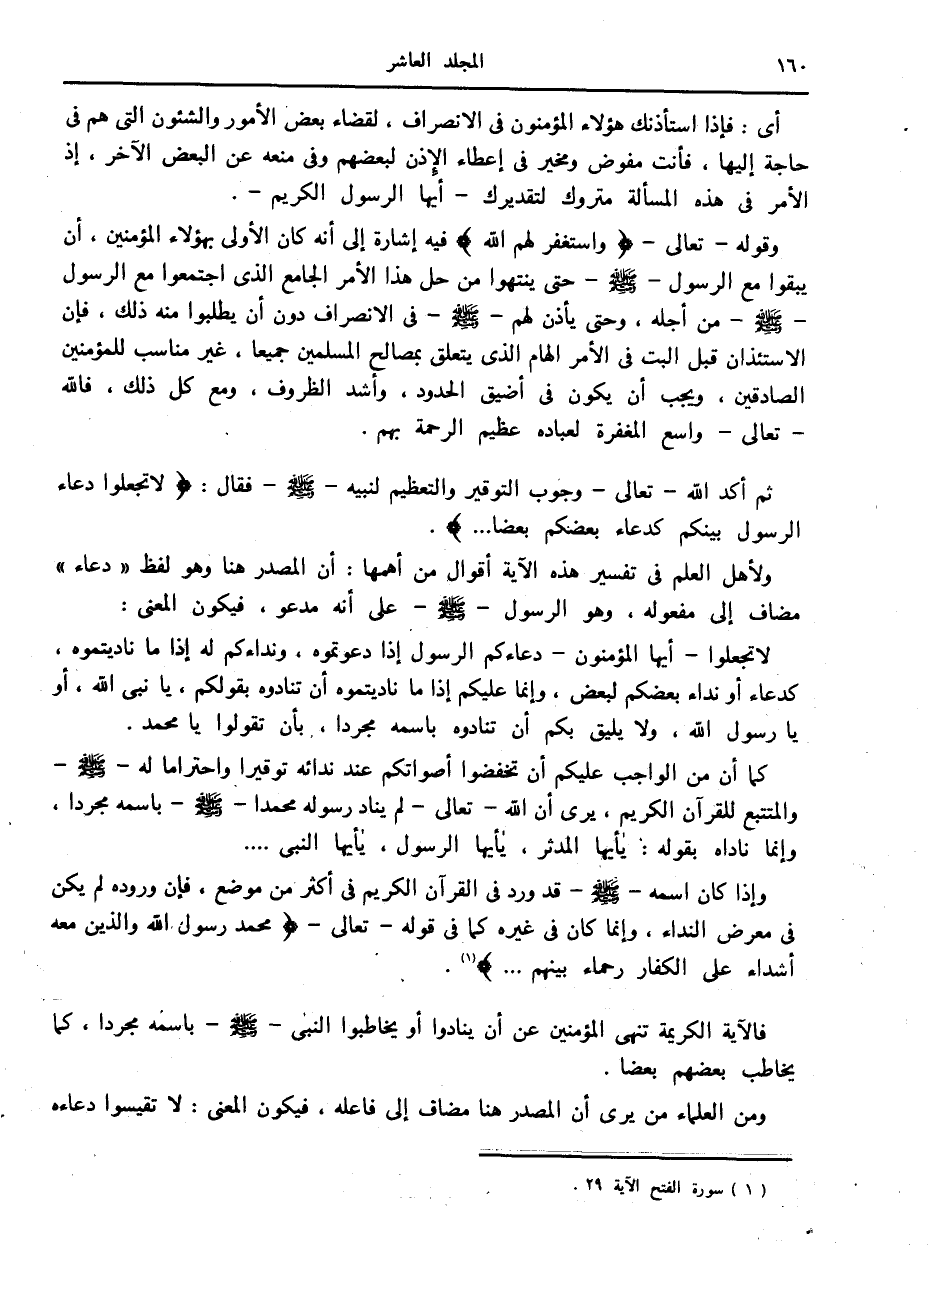 ١٦٠ المجلد العاشر
أى : فإذا استأذنك هؤلاء المؤمنون فى الانصراف ، لقضاء بعض الأمور والشئون التى هم فى
حاجة إليها ، فأنت مفوض ومخير فى إعطاء الإِذن لبعضهم وفى منعه عن البعض الآخر ، إذ
الأمر فى هذه المسألة متروك لتقديرك – أيها الرسول الكريم – .
وقوله – تعالى – ﴿ واستغفر لهم الله ﴾ فيه إشارة إلى أنه كان الأولى بهؤلاء المؤمنين ، أن
يبقوا مع الرسول – ﷺ – حتى ينتهوا من حل هذا الأمر الجامع الذى اجتمعوا مع الرسول
– ﷺ – من أجله ، وحتى يأذن لهم – ﷺ – فى الانصراف دون أن يطلبوا منه ذلك ، فإن
الاستئذان قبل البت فى الأمر الهام الذى يتعلق بمصالح المسلمين جميعا ، غير مناسب للمؤمنين
الصادقين ، ويجب أن يكون فى أضيق الحدود ، وأشد الظروف ، ومع كل ذلك ، فالله
– تعالى – واسع المغفرة لعباده عظيم الرحمة بهم .
ثم أكد الله – تعالى – وجوب التوقير والتعظيم لنبيه – ﷺ – فقال : ﴿ لاتجعلوا دعاء
الرسول بينكم كدعاء بعضكم بعضا... ﴾ .
ولأهل العلم فى تفسير هذه الآية أقوال من أهمها : أن المصدر هنا وهو لفظ « دعاء »
مضاف إلى مفعوله ، وهو الرسول – ﷺ – على أنه مدعو ، فيكون المعنى :
لاتجعلوا – أيها المؤمنون – دعاءكم الرسول إذا دعوتموه ، ونداءكم له إذا ما ناديتموه ،
كدعاء أو نداء بعضكم لبعض ، وإنما عليكم إذا ما ناديتموه أن تنادوه بقولكم ، يا نبى الله ، أو
يا رسول الله ، ولا يليق بكم أن تنادوه باسمه مجردا ، بأن تقولوا يا محمد .
كما أن من الواجب عليكم أن تخفضوا أصواتكم عند ندائه توقيرا واحتراما له – ﷺ –
والمتتبع للقرآن الكريم ، يرى أن الله – تعالى – لم يناد رسوله محمدا – ﷺ – باسمه مجردا ،
وإنما ناداه بقوله : يٰأيها المدثر ، يٰأيها الرسول ، يٰأيها النبى ....
وإذا كان اسمه – ﷺ – قد ورد فى القرآن الكريم فى أكثر من موضع ، فإن وروده لم يكن
فى معرض النداء ، وإنما كان فى غيره كما فى قوله – تعالى – ﴿ محمد رسول الله والذين معه
أشداء على الكفار رحماء بينهم ... ﴾(١) .
فالآية الكريمة تنهى المؤمنين عن أن ينادوا أو يخاطبوا النبى – ﷺ – باسمه مجردا ، كما
يخاطب بعضهم بعضا .
ومن العلماء من يرى أن المصدر هنا مضاف إلى فاعله ، فيكون المعنى : لا تقيسوا دعاءه
( ١ ) سورة الفتح الآية ٢٩ .